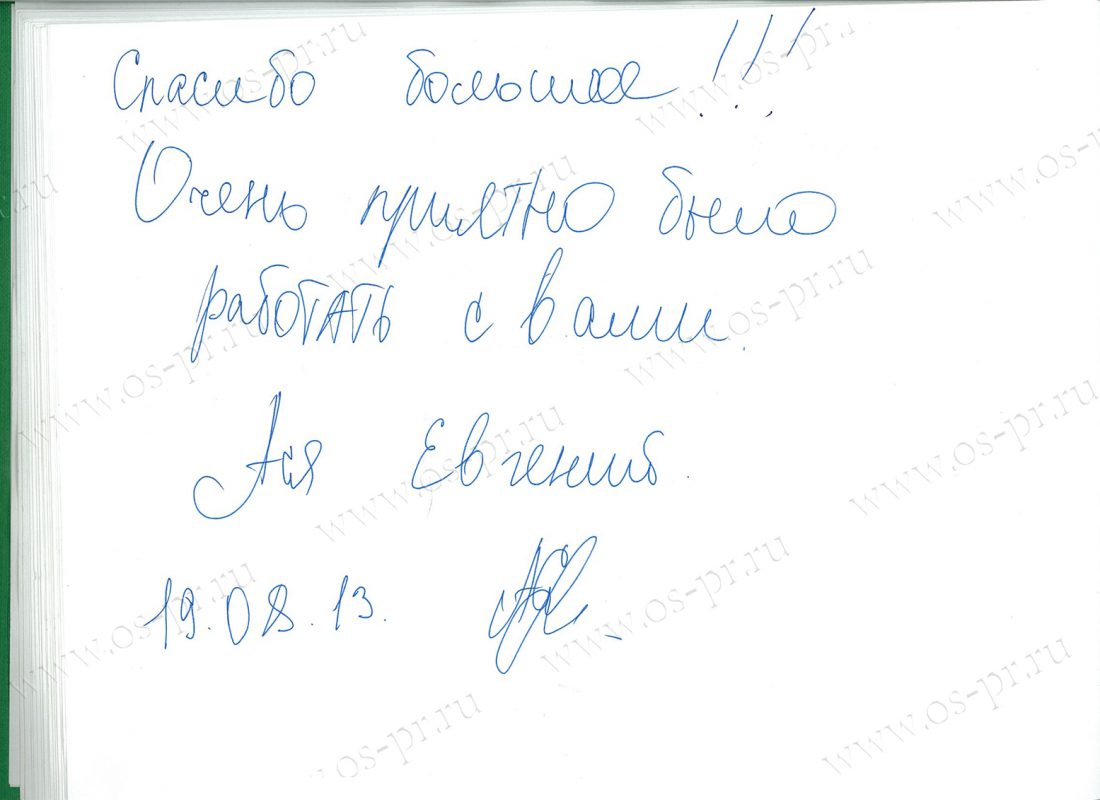 Спасибо большое !!!
Очень приятно было
работать с Вами.
Ася Евгений
19.08.13.
www.os-pr.ru